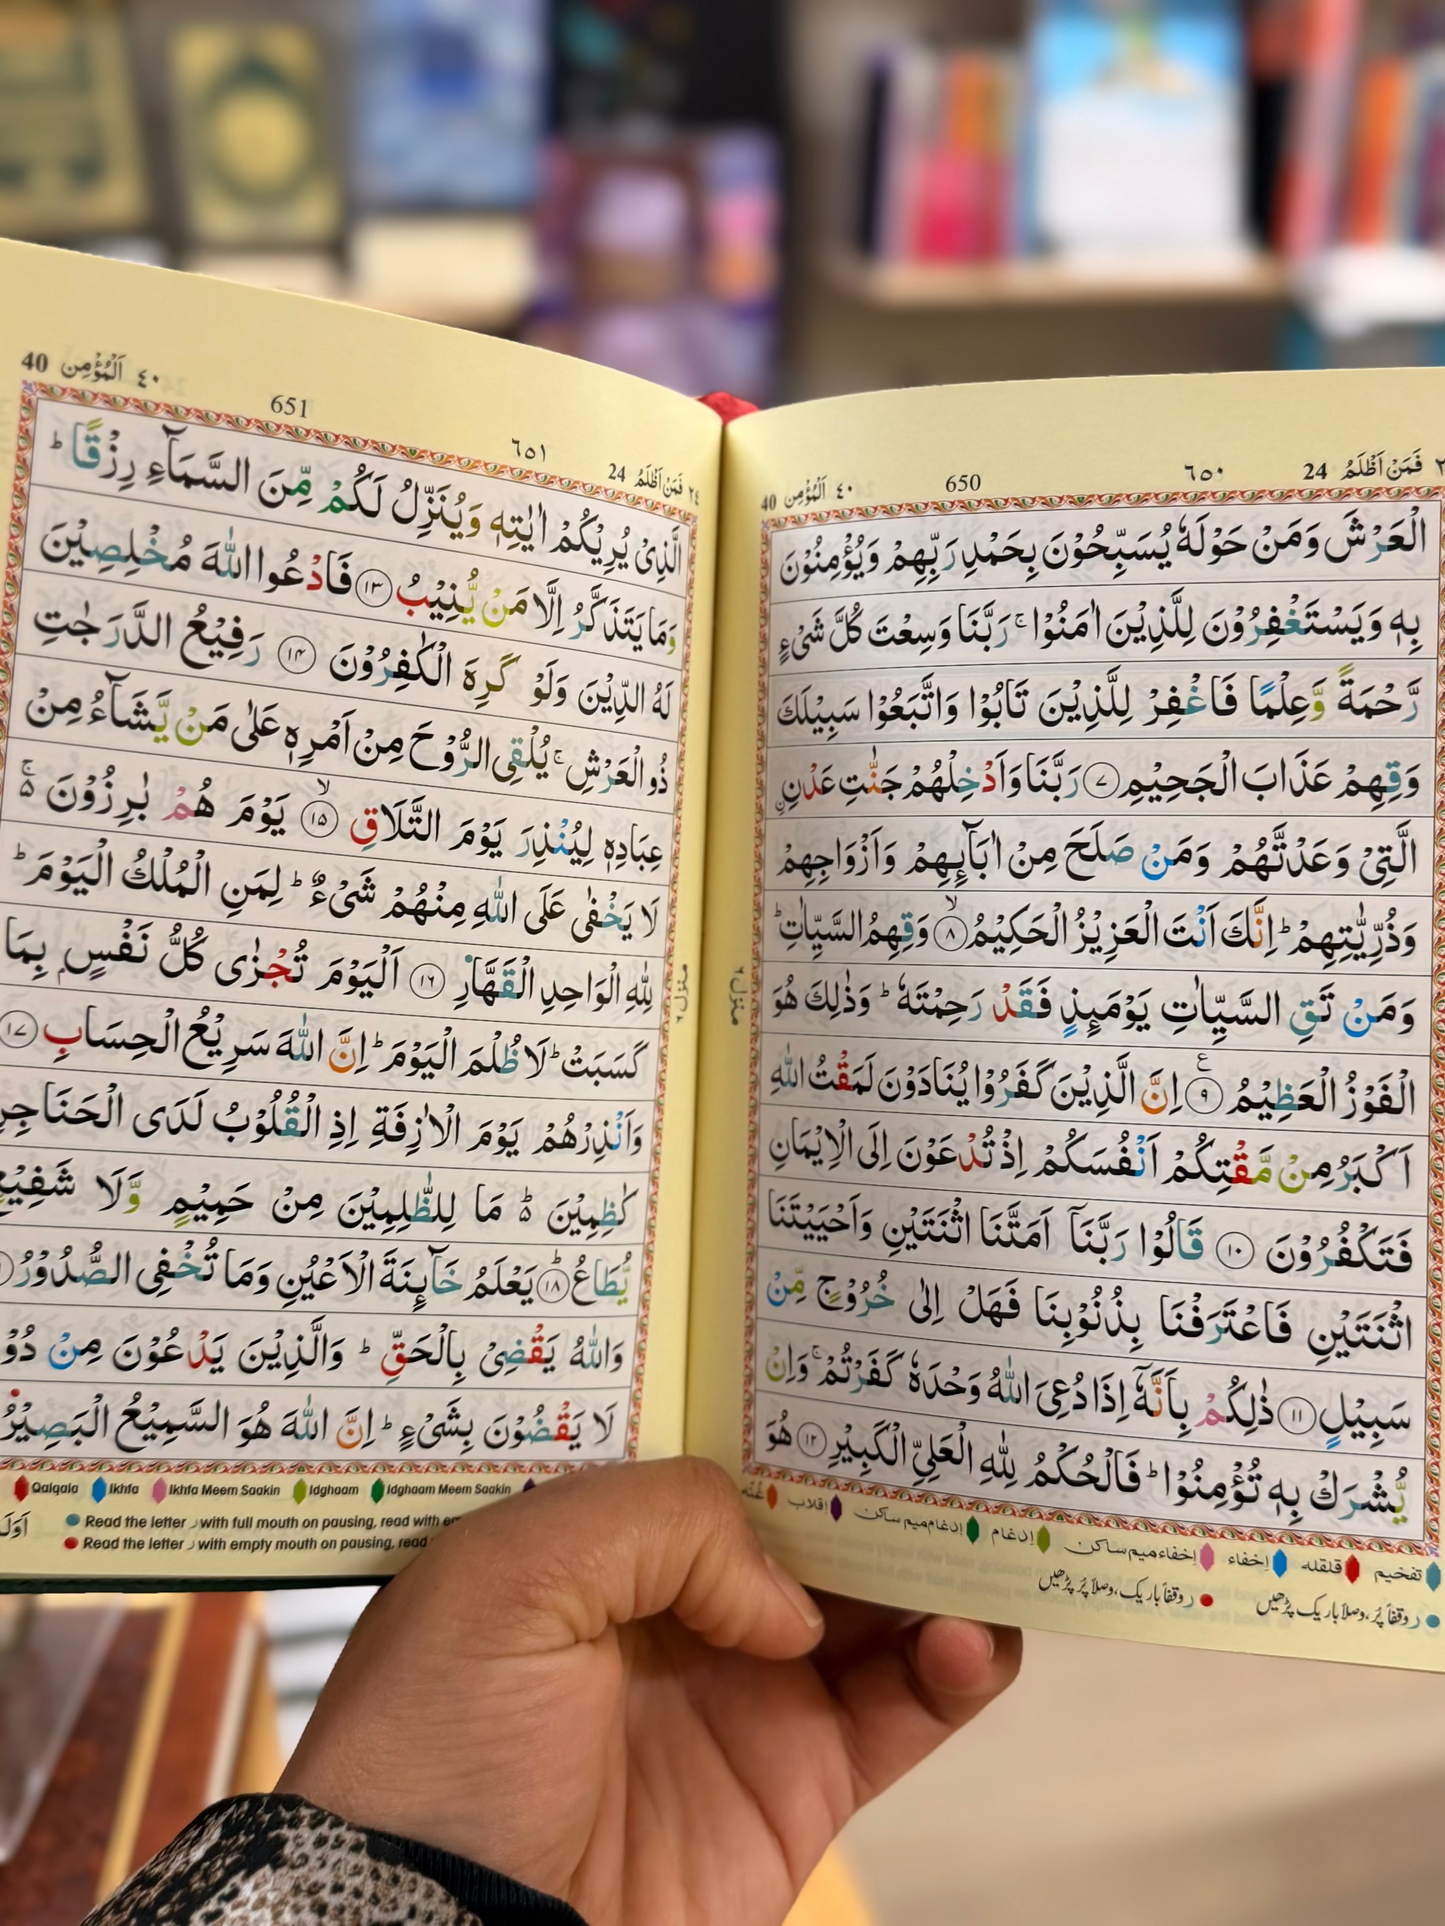 40 اَلْمُؤْمِن ٤٠
650
٦٥٠
24 فَمَنْ اَظْلَمُ
الْعَرْشَ وَمَنْ حَوْلَهٗ يُسَبِّحُوْنَ بِحَمْدِ رَبِّهِمْ وَيُؤْمِنُوْنَ
بِهٖ وَيَسْتَغْفِرُوْنَ لِلَّذِيْنَ اٰمَنُوْا ۚ رَبَّنَا وَسِعْتَ كُلَّ شَيْءٍ
رَّحْمَةً وَّعِلْمًا فَاغْفِرْ لِلَّذِيْنَ تَابُوْا وَاتَّبَعُوْا سَبِيْلَكَ
وَقِهِمْ عَذَابَ الْجَحِيْمِ ۝٧ رَبَّنَا وَاَدْخِلْهُمْ جَنّٰتِ عَدْنِ
الَّتِيْ وَعَدْتَّهُمْ وَمَنْ صَلَحَ مِنْ اٰبَآئِهِمْ وَاَزْوَاجِهِمْ
وَذُرِّيّٰتِهِمْ ؕ اِنَّكَ اَنْتَ الْعَزِيْزُ الْحَكِيْمُ ۝٨ۙ وَقِهِمُ السَّيِّاٰتِ ؕ
وَمَنْ تَقِ السَّيِّاٰتِ يَوْمَئِذٍ فَقَدْ رَحِمْتَهٗ ؕ وَذٰلِكَ هُوَ
الْفَوْزُ الْعَظِيْمُ ۝٩ اِنَّ الَّذِيْنَ كَفَرُوْا يُنَادَوْنَ لَمَقْتُ اللّٰهِ
اَكْبَرُ مِنْ مَّقْتِكُمْ اَنْفُسَكُمْ اِذْ تُدْعَوْنَ اِلَى الْاِيْمَانِ
فَتَكْفُرُوْنَ ۝١٠ قَالُوْا رَبَّنَآ اَمَتَّنَا اثْنَتَيْنِ وَاَحْيَيْتَنَا
اثْنَتَيْنِ فَاعْتَرَفْنَا بِذُنُوْبِنَا فَهَلْ اِلٰى خُرُوْجٍ مِّنْ
سَبِيْلٍ ۝١١ ذٰلِكُمْ بِاَنَّهٗٓ اِذَا دُعِيَ اللّٰهُ وَحْدَهٗ كَفَرْتُمْ ۚ وَاِنْ
يُّشْرَكْ بِهٖ تُؤْمِنُوْا ؕ فَالْحُكْمُ لِلّٰهِ الْعَلِيِّ الْكَبِيْرِ ۝١٢ هُوَ
منزل ٦
تفخیم قلقله إخفاء إخفاء میم ساکن إدغام إدغام میم ساکن اقلاب غُنّه
ر وقفاً پُر، وصلاً باریک پڑھیں ر وقفاً باریک، وصلاً پُر پڑھیں
40 اَلْمُؤْمِن ٤٠
651
٦٥١
24 فَمَنْ اَظْلَمُ ٢٤
الَّذِيْ يُرِيْكُمْ اٰيٰتِهٖ وَيُنَزِّلُ لَكُمْ مِّنَ السَّمَآءِ رِزْقًا ؕ
وَمَا يَتَذَكَّرُ اِلَّا مَنْ يُّنِيْبُ ۝١٣ فَادْعُوا اللّٰهَ مُخْلِصِيْنَ
لَهُ الدِّيْنَ وَلَوْ كَرِهَ الْكٰفِرُوْنَ ۝١٤ رَفِيْعُ الدَّرَجٰتِ
ذُو الْعَرْشِ ۚ يُلْقِي الرُّوْحَ مِنْ اَمْرِهٖ عَلٰى مَنْ يَّشَآءُ مِنْ
عِبَادِهٖ لِيُنْذِرَ يَوْمَ التَّلَاقِ ۝١٥ۙ يَوْمَ هُمْ بٰرِزُوْنَ ۚ۬
لَا يَخْفٰى عَلَى اللّٰهِ مِنْهُمْ شَيْءٌ ؕ لِمَنِ الْمُلْكُ الْيَوْمَ ؕ
لِلّٰهِ الْوَاحِدِ الْقَهَّارِ ۝١٦ اَلْيَوْمَ تُجْزٰى كُلُّ نَفْسٍ بِمَا
كَسَبَتْ ؕ لَا ظُلْمَ الْيَوْمَ ؕ اِنَّ اللّٰهَ سَرِيْعُ الْحِسَابِ ۝١٧
وَاَنْذِرْهُمْ يَوْمَ الْاٰزِفَةِ اِذِ الْقُلُوْبُ لَدَى الْحَنَاجِرِ
كٰظِمِيْنَ ؕ۬ مَا لِلظّٰلِمِيْنَ مِنْ حَمِيْمٍ وَّلَا شَفِيْعٍ
يُّطَاعُ ۝١٨ؕ يَعْلَمُ خَآئِنَةَ الْاَعْيُنِ وَمَا تُخْفِي الصُّدُوْرُ
وَاللّٰهُ يَقْضِيْ بِالْحَقِّ ؕ وَالَّذِيْنَ يَدْعُوْنَ مِنْ
لَا يَقْضُوْنَ بِشَيْءٍ ؕ اِنَّ اللّٰهَ هُوَ السَّمِيْعُ الْبَصِيْرُ
منزل ٦
Qalqala Ikhfa Ikhfa Meem Saakin Idghaam Idghaam Meem Saakin
Read the letter ر with full mouth on pausing, read with
Read the letter ر with empty mouth on pausing, read